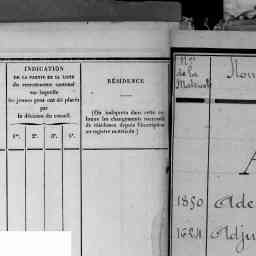 INDICATION
DE LA PARTIE DE LA LISTE
du recrutement cantonal
sur laquelle
les jeunes gens ont été placés
par
la décision du conseil.
1re. 2e. 3e. 4e.
RÉSIDENCE
(On indiquera dans cette co-
lonne les changements successifs
de résidence depuis l'inscription
au registre matricule.)
Nos
de la
Matricule
1850 Ade
1624 Adju